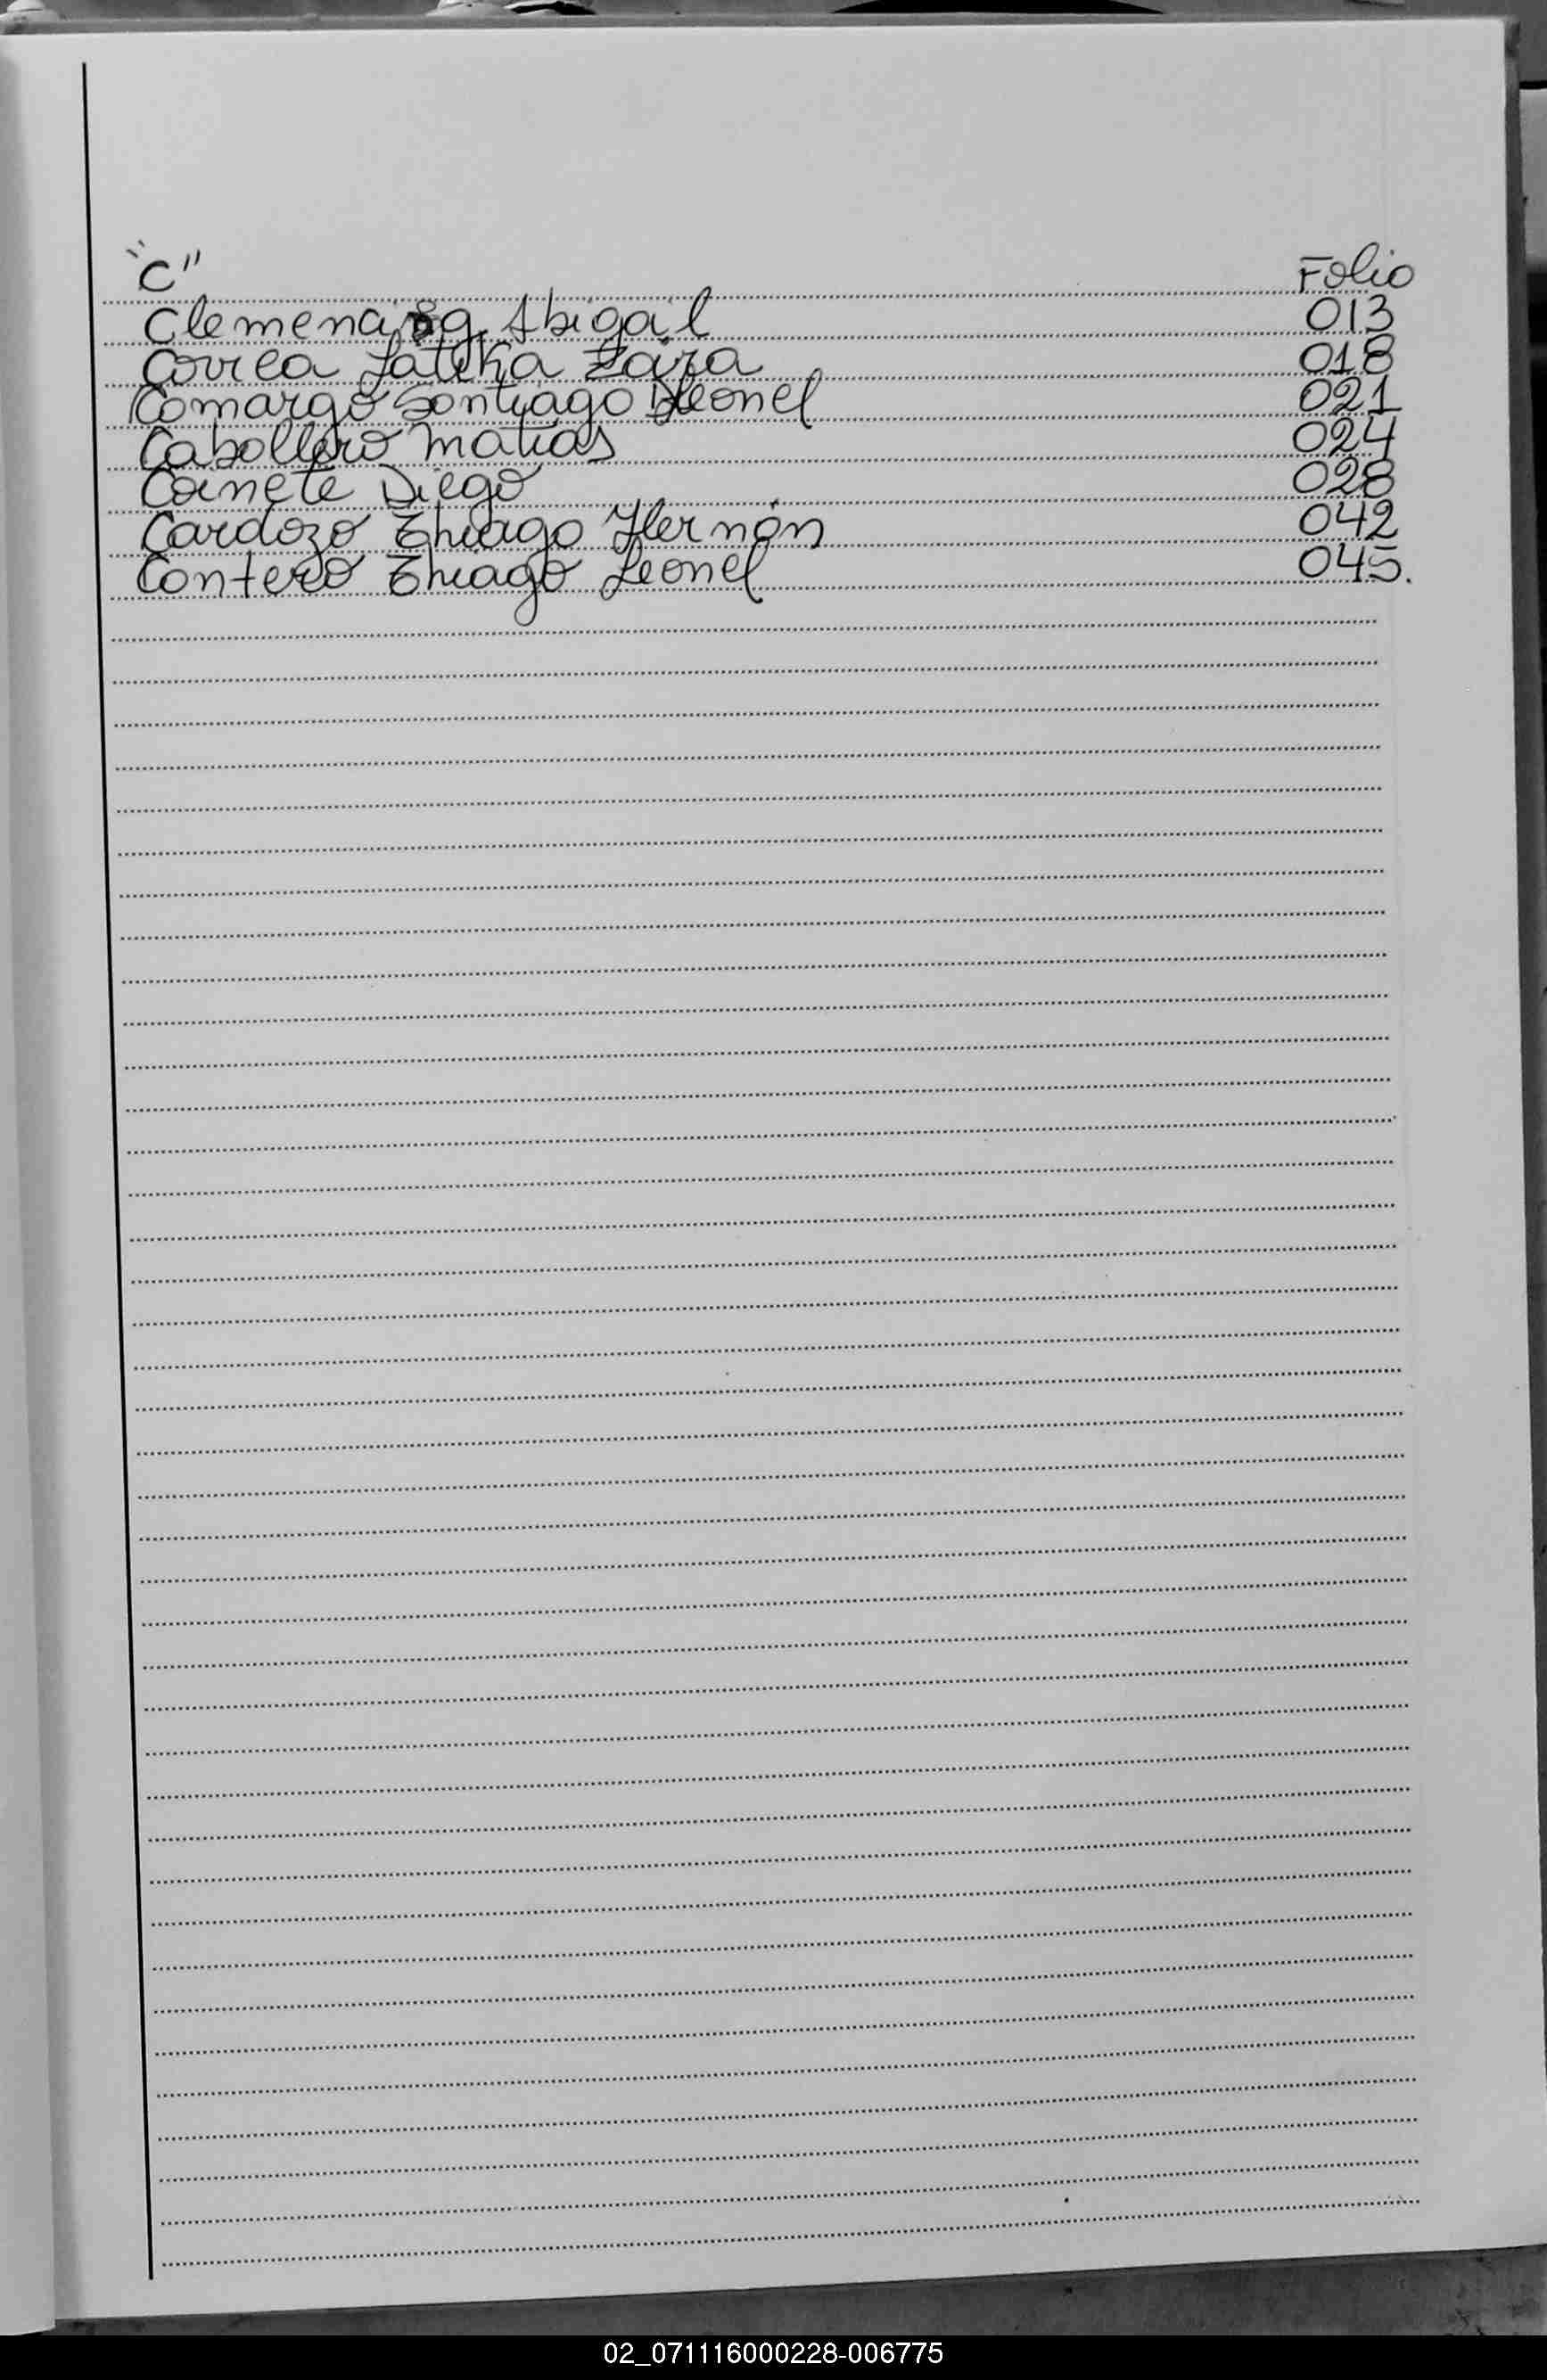 "C" Folio
Abigail 013
Correa Zaira 018
Camargo Santiago Leonel 021
Caballero Matias 024
Cañete Diego 028
Cardozo Thiago Hernán 042
Contero Thiago Leonel 045.
02_071116000228-006775